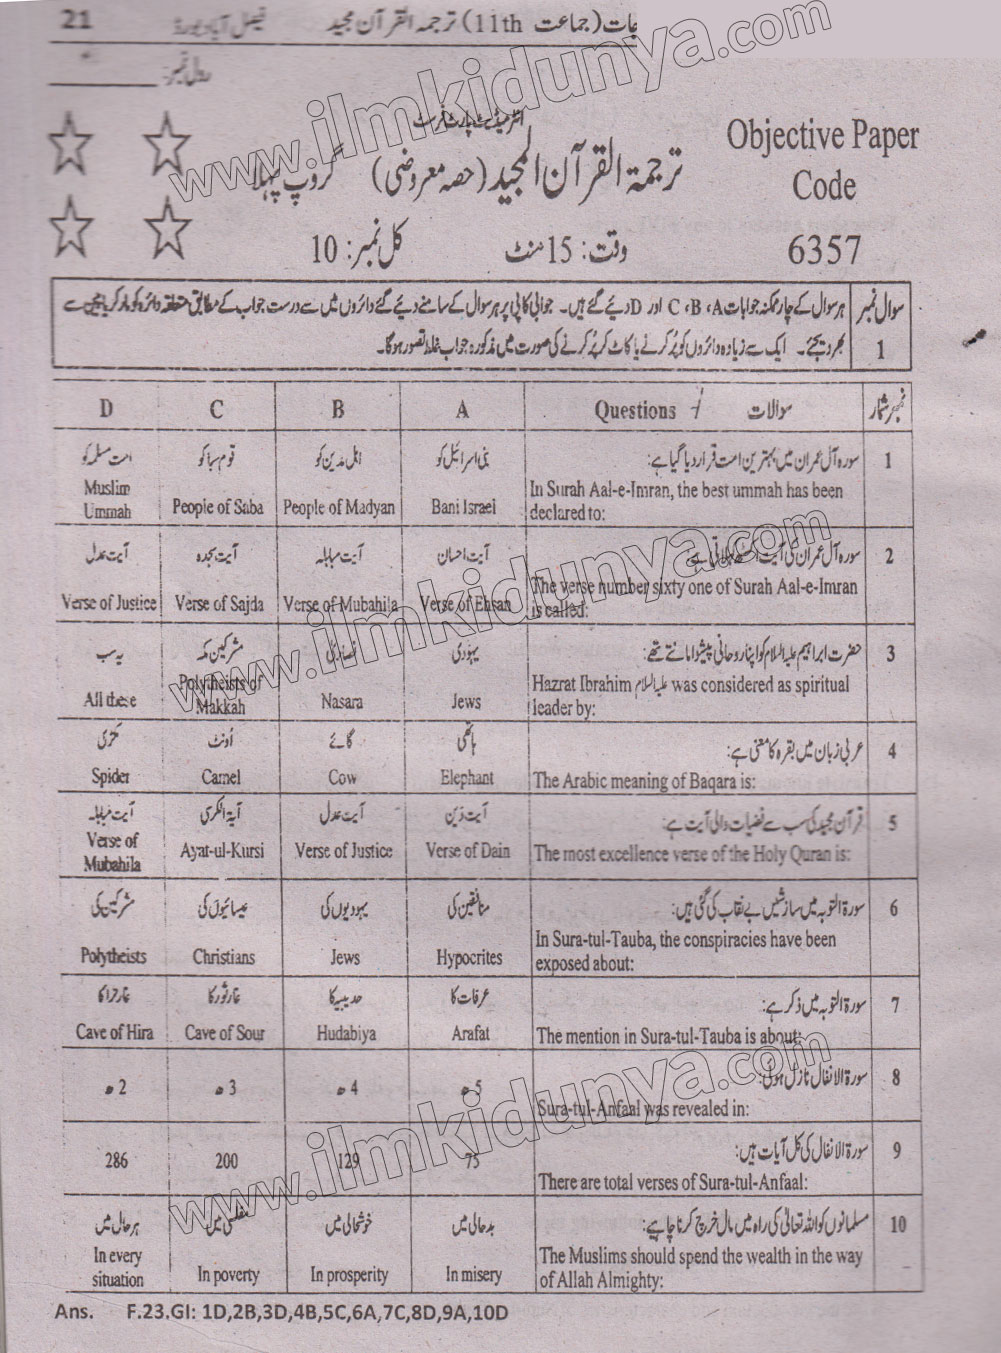 21 فیصل آباد بورڈ (جماعت 11th) ترجمہ القرآن مجید
رول نمبر:
انٹرمیڈیٹ پارٹ فرسٹ
Objective Paper
Code
6357
ترجمۃ القرآن المجید (حصہ معروضی) گروپ پہلا
وقت: 15 منٹ کل نمبر: 10
سوال نمبر 1
ہر سوال کے چار ممکنہ جوابات A، B، C اور D دیے گئے ہیں۔ جوابی کاپی پر ہر سوال کے سامنے دیے گئے دائروں میں سے درست جواب کے مطابق متعلقہ دائرہ کو مارکر یا پین سے
بھر دیجئے۔ ایک سے زیادہ دائروں کو پُر کرنے یا کاٹ کر پُر کرنے کی صورت میں مذکورہ جواب غلط تصور ہوگا۔
نمبر شمار سوالات Questions A B C D
1 سورہ آل عمران میں بہترین امت قرار دیا گیا ہے: بنی اسرائیل کو اہل مدین کو قوم سبا کو امت مسلمہ کو
In Surah Aal-e-Imran, the best ummah has been declared to: Bani Israel People of Madyan People of Saba Muslim Ummah
2 سورہ آل عمران کی آیت آیت احسان آیت مباہلہ آیت سجدہ آیت عدل
The verse number sixty one of Surah Aal-e-Imran is called: Verse of Ehsan Verse of Mubahila Verse of Sajda Verse of Justice
3 حضرت ابراہیم علیہ السلام کو اپنا روحانی پیشوا مانتے تھے: یہودی نصاریٰ مشرکین مکہ یہ سب
Hazrat Ibrahim علیہ السلام was considered as spiritual leader by: Jews Nasara Polytheists of Makkah All these
4 عربی زبان میں بقرہ کا معنی ہے: ہاتھی گائے اُونٹ مکڑی
The Arabic meaning of Baqara is: Elephant Cow Camel Spider
5 قرآن مجید کی سب سے فضیلت والی آیت ہے: آیت دَین آیت عدل آیۃ الکرسی آیت مباہلہ
The most excellence verse of the Holy Quran is: Verse of Dain Verse of Justice Ayat-ul-Kursi Verse of Mubahila
6 سورۃ التوبہ میں سازشیں بے نقاب کی گئی ہیں: منافقین کی یہودیوں کی عیسائیوں کی مشرکین کی
In Sura-tul-Tauba, the conspiracies have been exposed about: Hypocrites Jews Christians Polytheists
7 سورۃ التوبہ میں ذکر ہے: عرفات کا حدیبیہ کا غار ثور کا غار حرا کا
The mention in Sura-tul-Tauba is about: Arafat Hudabiya Cave of Sour Cave of Hira
8 سورۃ الانفال نازل ہوئی: 5 ھ 4 ھ 3 ھ 2 ھ
Sura-tul-Anfaal was revealed in:
9 سورۃ الانفال کی کل آیات ہیں: 75 129 200 286
There are total verses of Sura-tul-Anfaal:
10 مسلمانوں کو اللہ تعالیٰ کی راہ میں مال خرچ کرنا چاہیے: بدحالی میں خوشحالی میں مفلسی میں ہر حال میں
The Muslims should spend the wealth in the way of Allah Almighty: In misery In prosperity In poverty In every situation
Ans. F.23.GI: 1D,2B,3D,4B,5C,6A,7C,8D,9A,10D
www.ilmkidunya.com
www.ilmkidunya.com
www.ilmkidunya.com